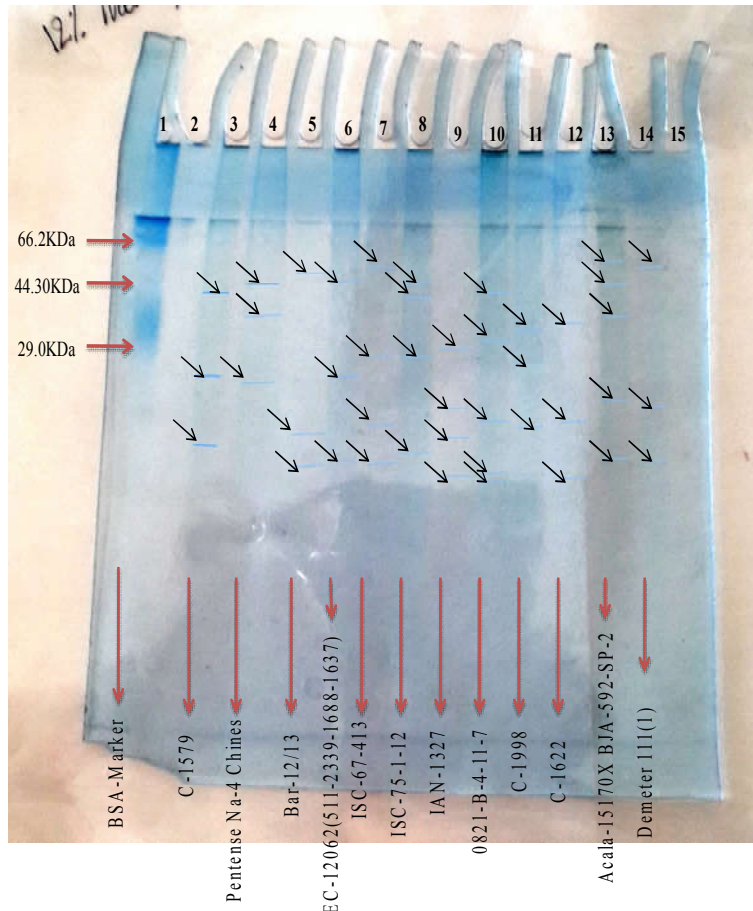 12%
1 2 3 4 5 6 7 8 9 10 11 12 13 14 15
66.2KDa
44.30KDa
29.0KDa
BSA-Marker
C-1579
Pentense Na-4 Chines
Bar-12/13
EC-12062(511-2339-1688-1637)
ISC-67-413
ISC-75-1-12
IAN-1327
0821-B-4-11-7
C-1998
C-1622
Acala-15170X BIA-592-SP-2
Demeter 111(1)